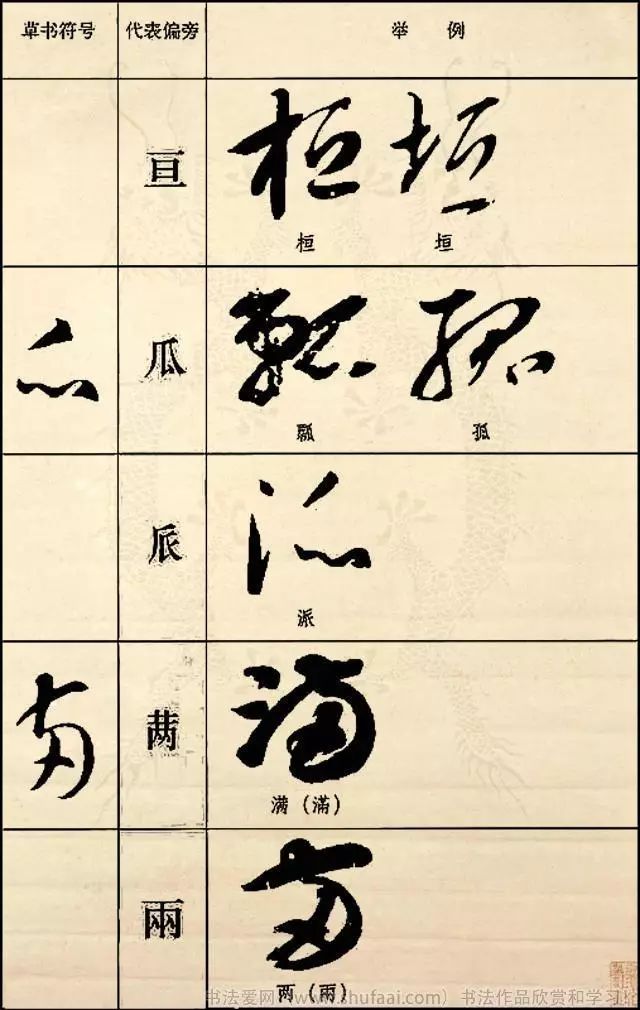 草书符号 代表偏旁 举例
亘 桓 垣
桓 垣
瓜 瓢 孤
瓢 孤
𠂢 派
派
㒼 满
满（滿）
兩 两
两（兩）
书法爱网（www.shufaai.com） 书法作品欣赏和学习